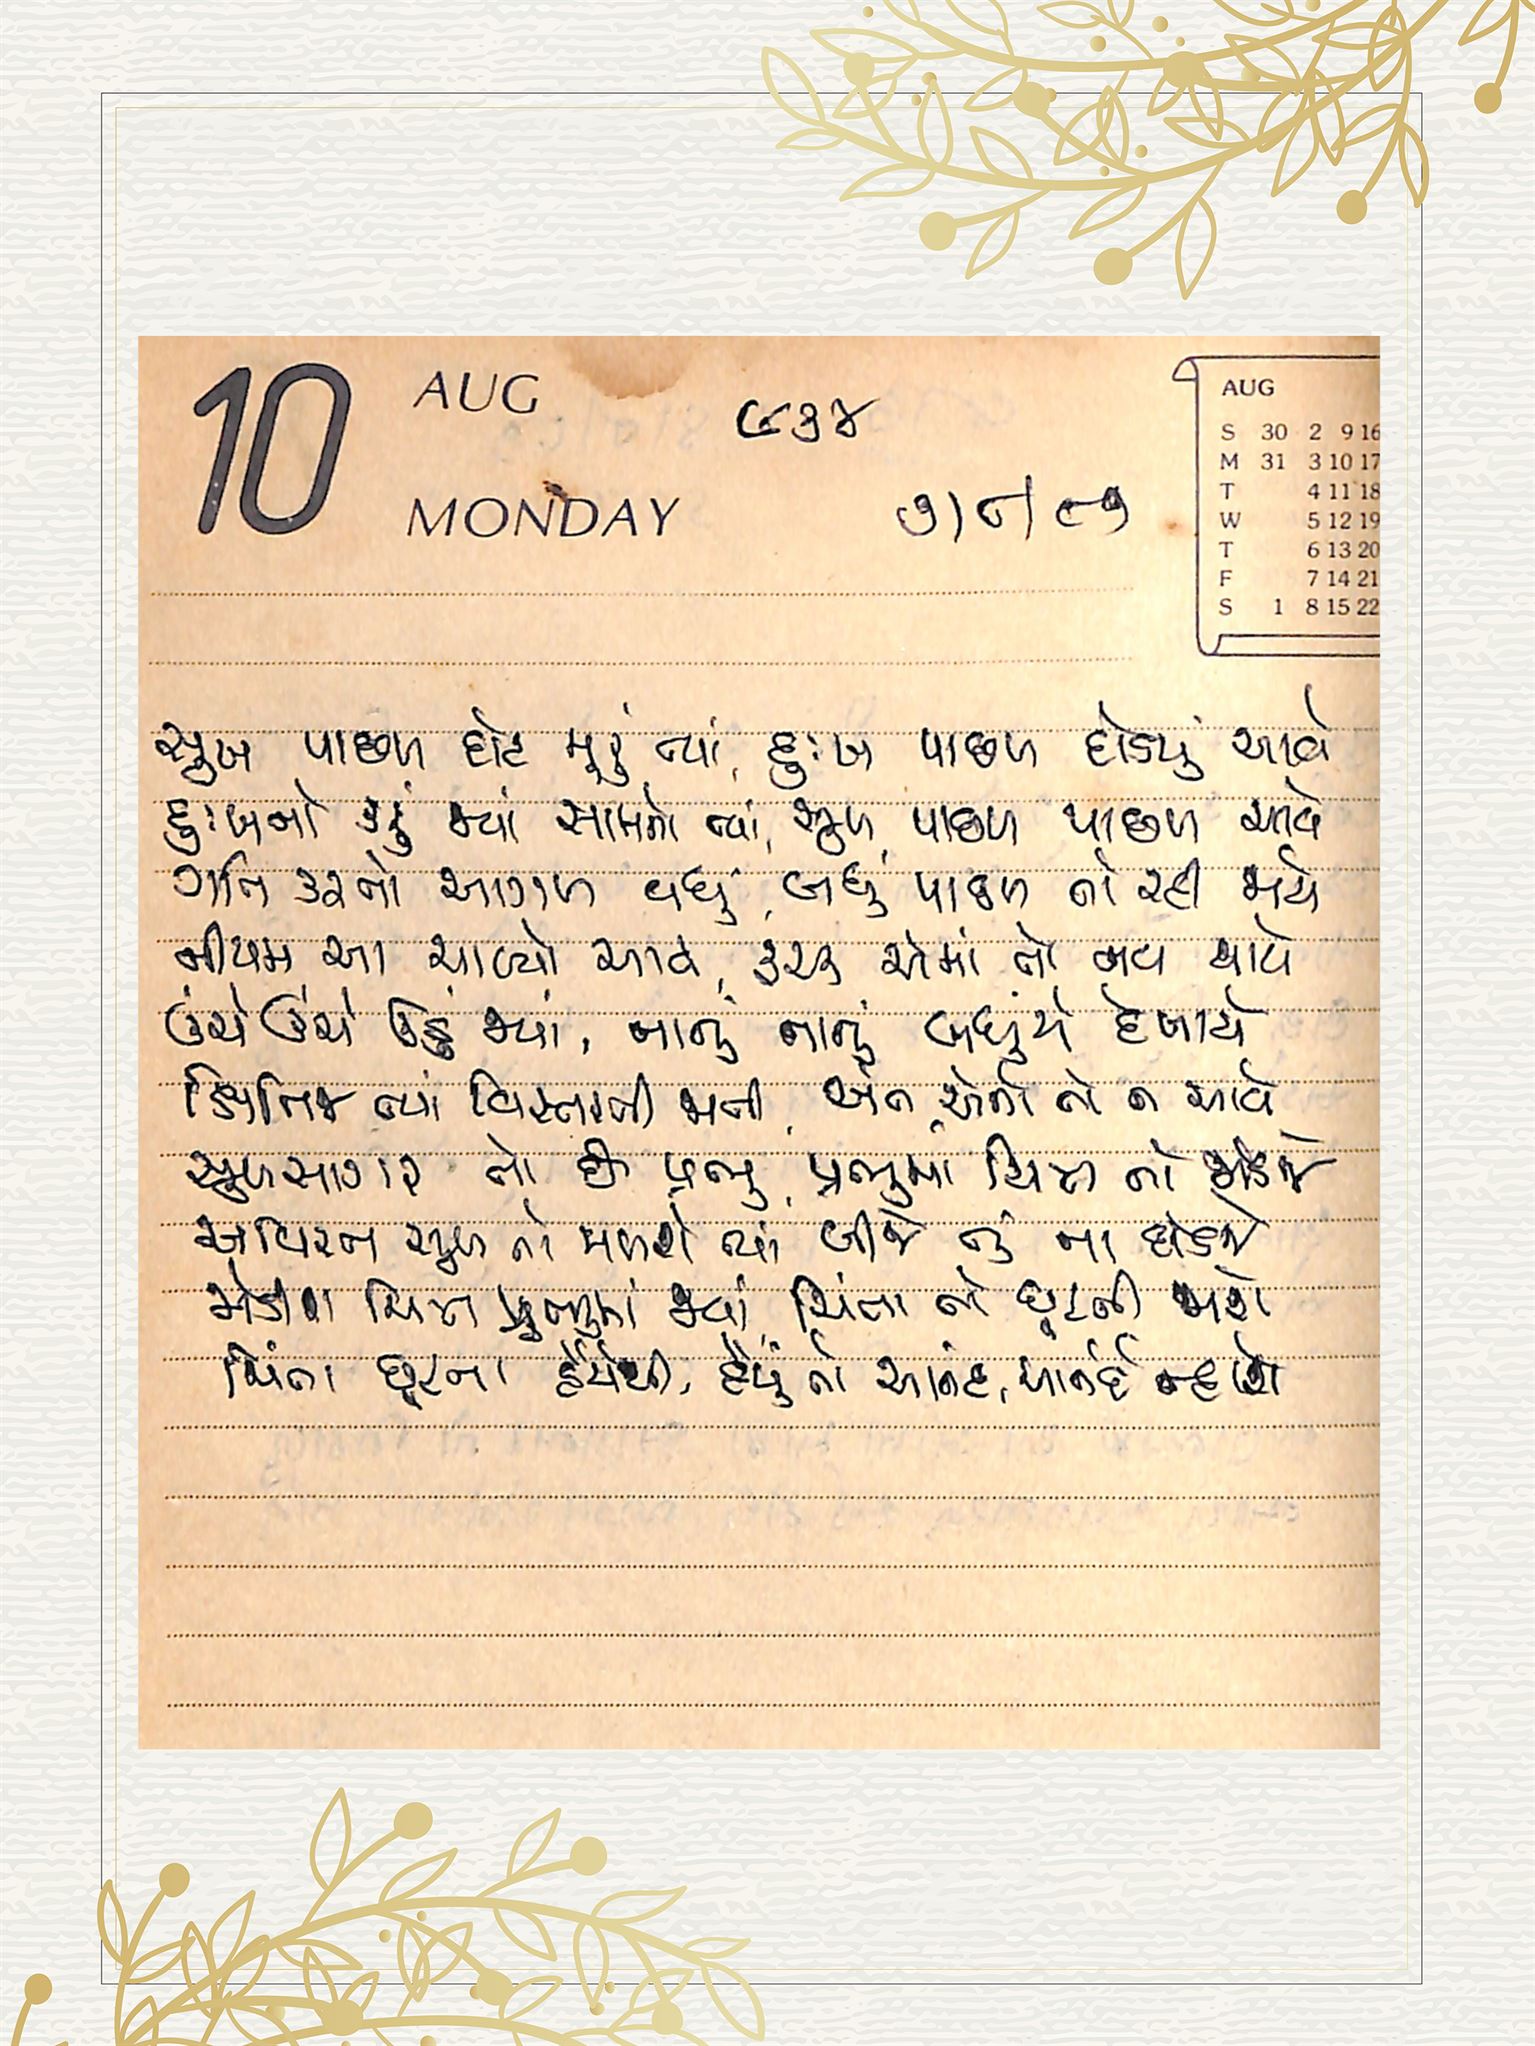 10 AUG
MONDAY
AUG
S 30 2 9 16
M 31 3 10 17
T 4 11 18
W 5 12 19
T 6 13 20
F 7 14 21
S 1 8 15 22
સુખ પાછળ દોટ મૂકું ત્યાં, દુઃખ પાછળ દોડયું આવે
દુઃખનો કરું જ્યાં સામનો ત્યાં, સુખ પાછળ પાછળ આવે
ગતિ કરતો આગળ વધું, બધું પાછળ તો રહી જાયે
નીયમ આ ચાલ્યો આવે, ફરક એમાં તો નવ થાયે
ઉંચે ઉંચે ઉડું જ્યાં, નાનું નાનું બધુંયે દેખાયે
ક્ષિતિજ ત્યાં વિસ્તરતી જાતી, અંત એનો તો ન આવે
સુખસાગર તો છે પ્રભુ, પ્રભુમાં ચિત્ત તો જોડજે
અવિરત સુખ તો મળશે ત્યાં બીજે તું ના દોડજે
જોડાતા ચિત્ત પ્રભુમાં જ્યાં, ચિંતા તો છૂટતી જાશે
ચિંતા છૂટતા હૈયેથી, હૈયું તો આનંદે, આનંદે ન્હાશે